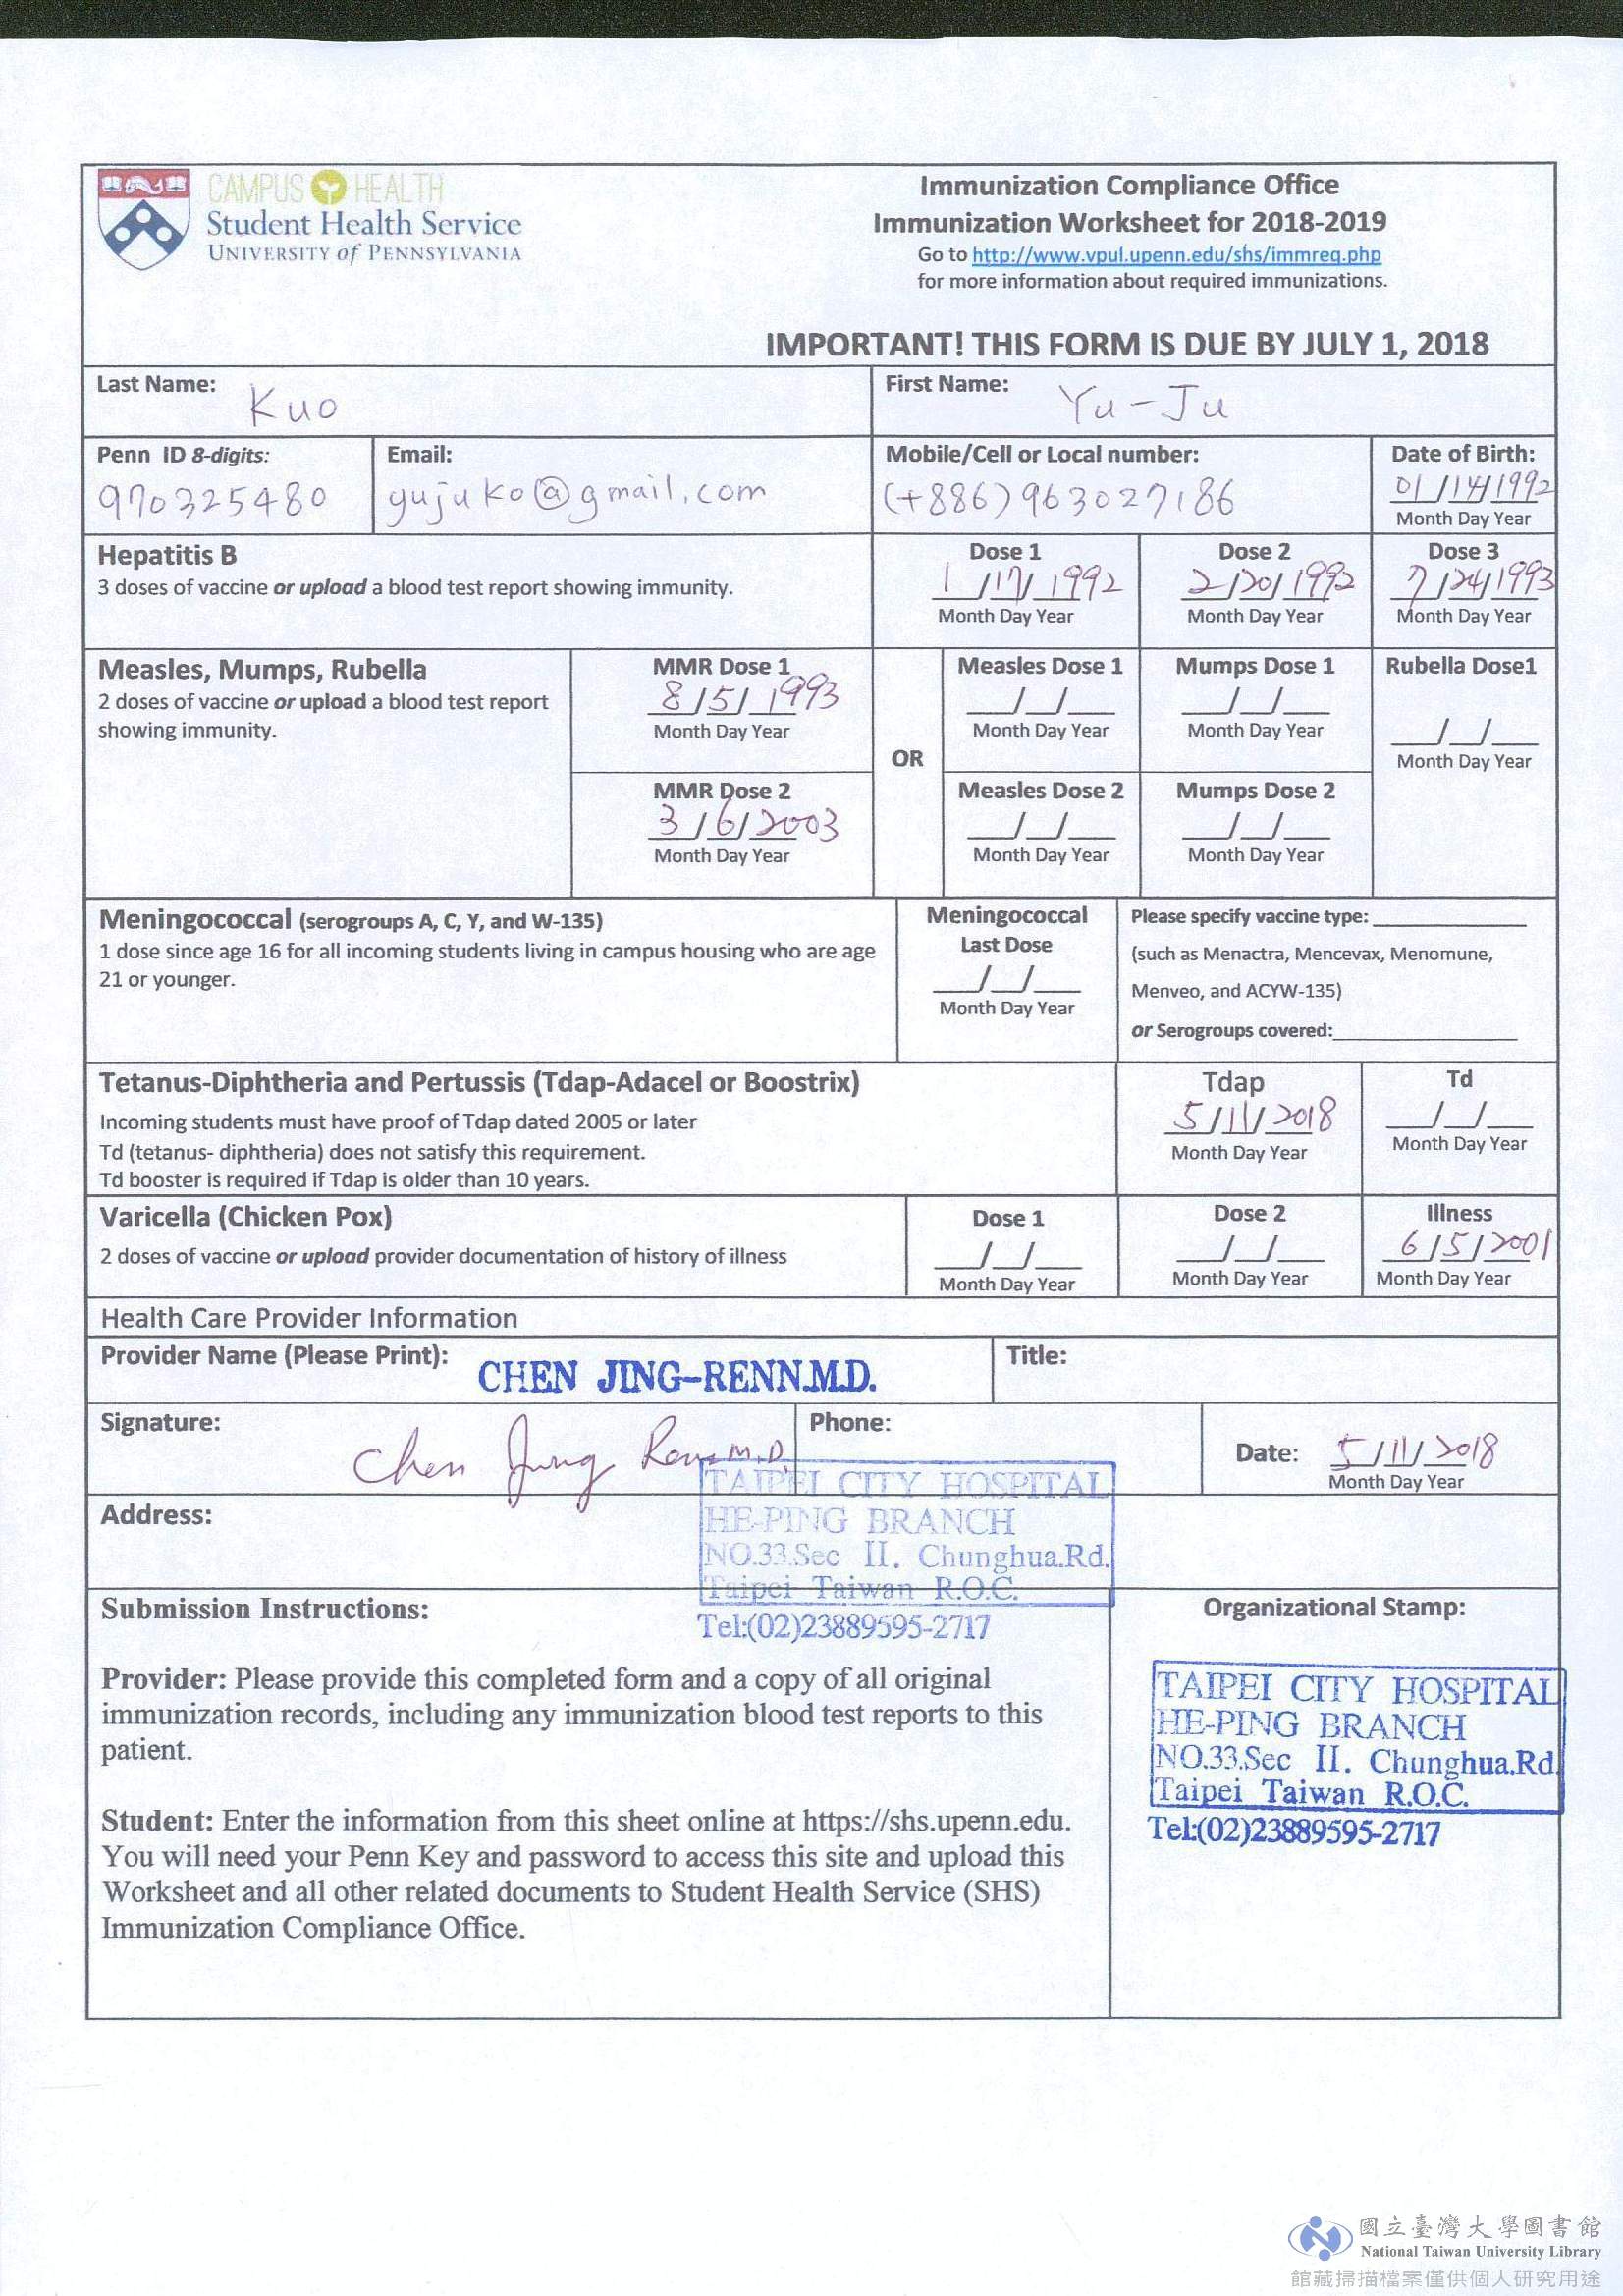 CAMPUS HEALTH
Student Health Service
UNIVERSITY of PENNSYLVANIA
Immunization Compliance Office
Immunization Worksheet for 2018-2019
Go to http://www.vpul.upenn.edu/shs/immreq.php
for more information about required immunizations.
IMPORTANT! THIS FORM IS DUE BY JULY 1, 2018
Last Name: Kuo
First Name: Yu-Ju
Penn ID 8-digits:
970325480
Email:
yujuko@gmail.com
Mobile/Cell or Local number:
(+886)963027186
Date of Birth:
01/14/1992
Month Day Year
Hepatitis B
3 doses of vaccine or upload a blood test report showing immunity.
Dose 1
1/17/1992
Month Day Year
Dose 2
2/20/1992
Month Day Year
Dose 3
7/24/1993
Month Day Year
Measles, Mumps, Rubella
2 doses of vaccine or upload a blood test report
showing immunity.
MMR Dose 1
8/5/1993
Month Day Year
MMR Dose 2
3/6/2003
Month Day Year
OR
Measles Dose 1
_/_/_
Month Day Year
Mumps Dose 1
_/_/_
Month Day Year
Rubella Dose1
_/_/_
Month Day Year
Measles Dose 2
_/_/_
Month Day Year
Mumps Dose 2
_/_/_
Month Day Year
Meningococcal (serogroups A, C, Y, and W-135)
1 dose since age 16 for all incoming students living in campus housing who are age
21 or younger.
Meningococcal
Last Dose
_/_/_
Month Day Year
Please specify vaccine type:
(such as Menactra, Mencevax, Menomune,
Menveo, and ACYW-135)
or Serogroups covered:
Tetanus-Diphtheria and Pertussis (Tdap-Adacel or Boostrix)
Incoming students must have proof of Tdap dated 2005 or later
Td (tetanus- diphtheria) does not satisfy this requirement.
Td booster is required if Tdap is older than 10 years.
Tdap
5/11/2018
Month Day Year
Td
_/_/_
Month Day Year
Varicella (Chicken Pox)
2 doses of vaccine or upload provider documentation of history of illness
Dose 1
_/_/_
Month Day Year
Dose 2
_/_/_
Month Day Year
Illness
6/5/2001
Month Day Year
Health Care Provider Information
Provider Name (Please Print): CHEN JING-RENN.M.D.
Title:
Signature: Chen Jing Renn M.D.
Phone:
Date: 5/11/2018
Month Day Year
Address:
TAIPEI CITY HOSPITAL
HE-PING BRANCH
NO.33.Sec II. Chunghua.Rd.
Taipei Taiwan R.O.C.
Tel:(02)23889595-2717
Submission Instructions:
Provider: Please provide this completed form and a copy of all original
immunization records, including any immunization blood test reports to this
patient.
Student: Enter the information from this sheet online at https://shs.upenn.edu.
You will need your Penn Key and password to access this site and upload this
Worksheet and all other related documents to Student Health Service (SHS)
Immunization Compliance Office.
Organizational Stamp:
TAIPEI CITY HOSPITAL
HE-PING BRANCH
NO.33.Sec II. Chunghua.Rd.
Taipei Taiwan R.O.C.
Tel:(02)23889595-2717
國立臺灣大學圖書館
National Taiwan University Library
館藏掃描檔案僅供個人研究用途